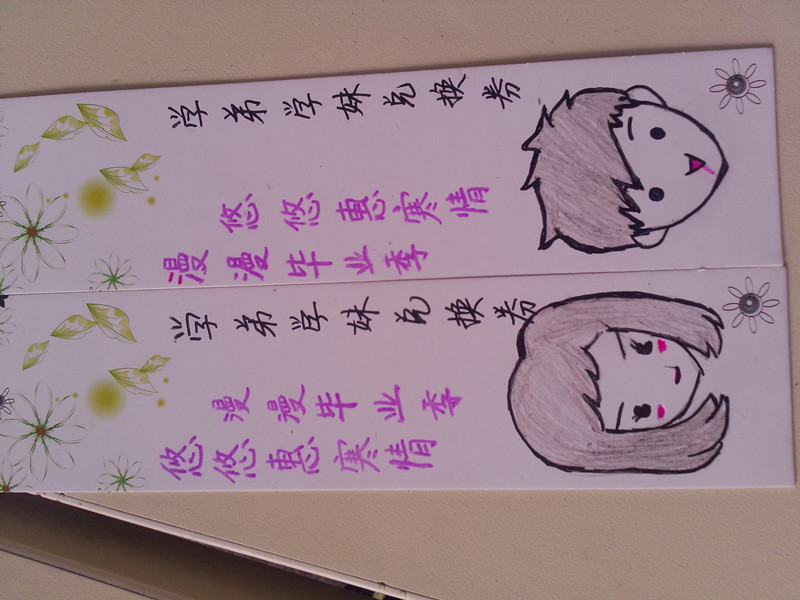 学弟学妹兑换券
悠悠惠寒情
漫漫毕业季
学弟学妹兑换券
漫漫毕业季
悠悠惠寒情